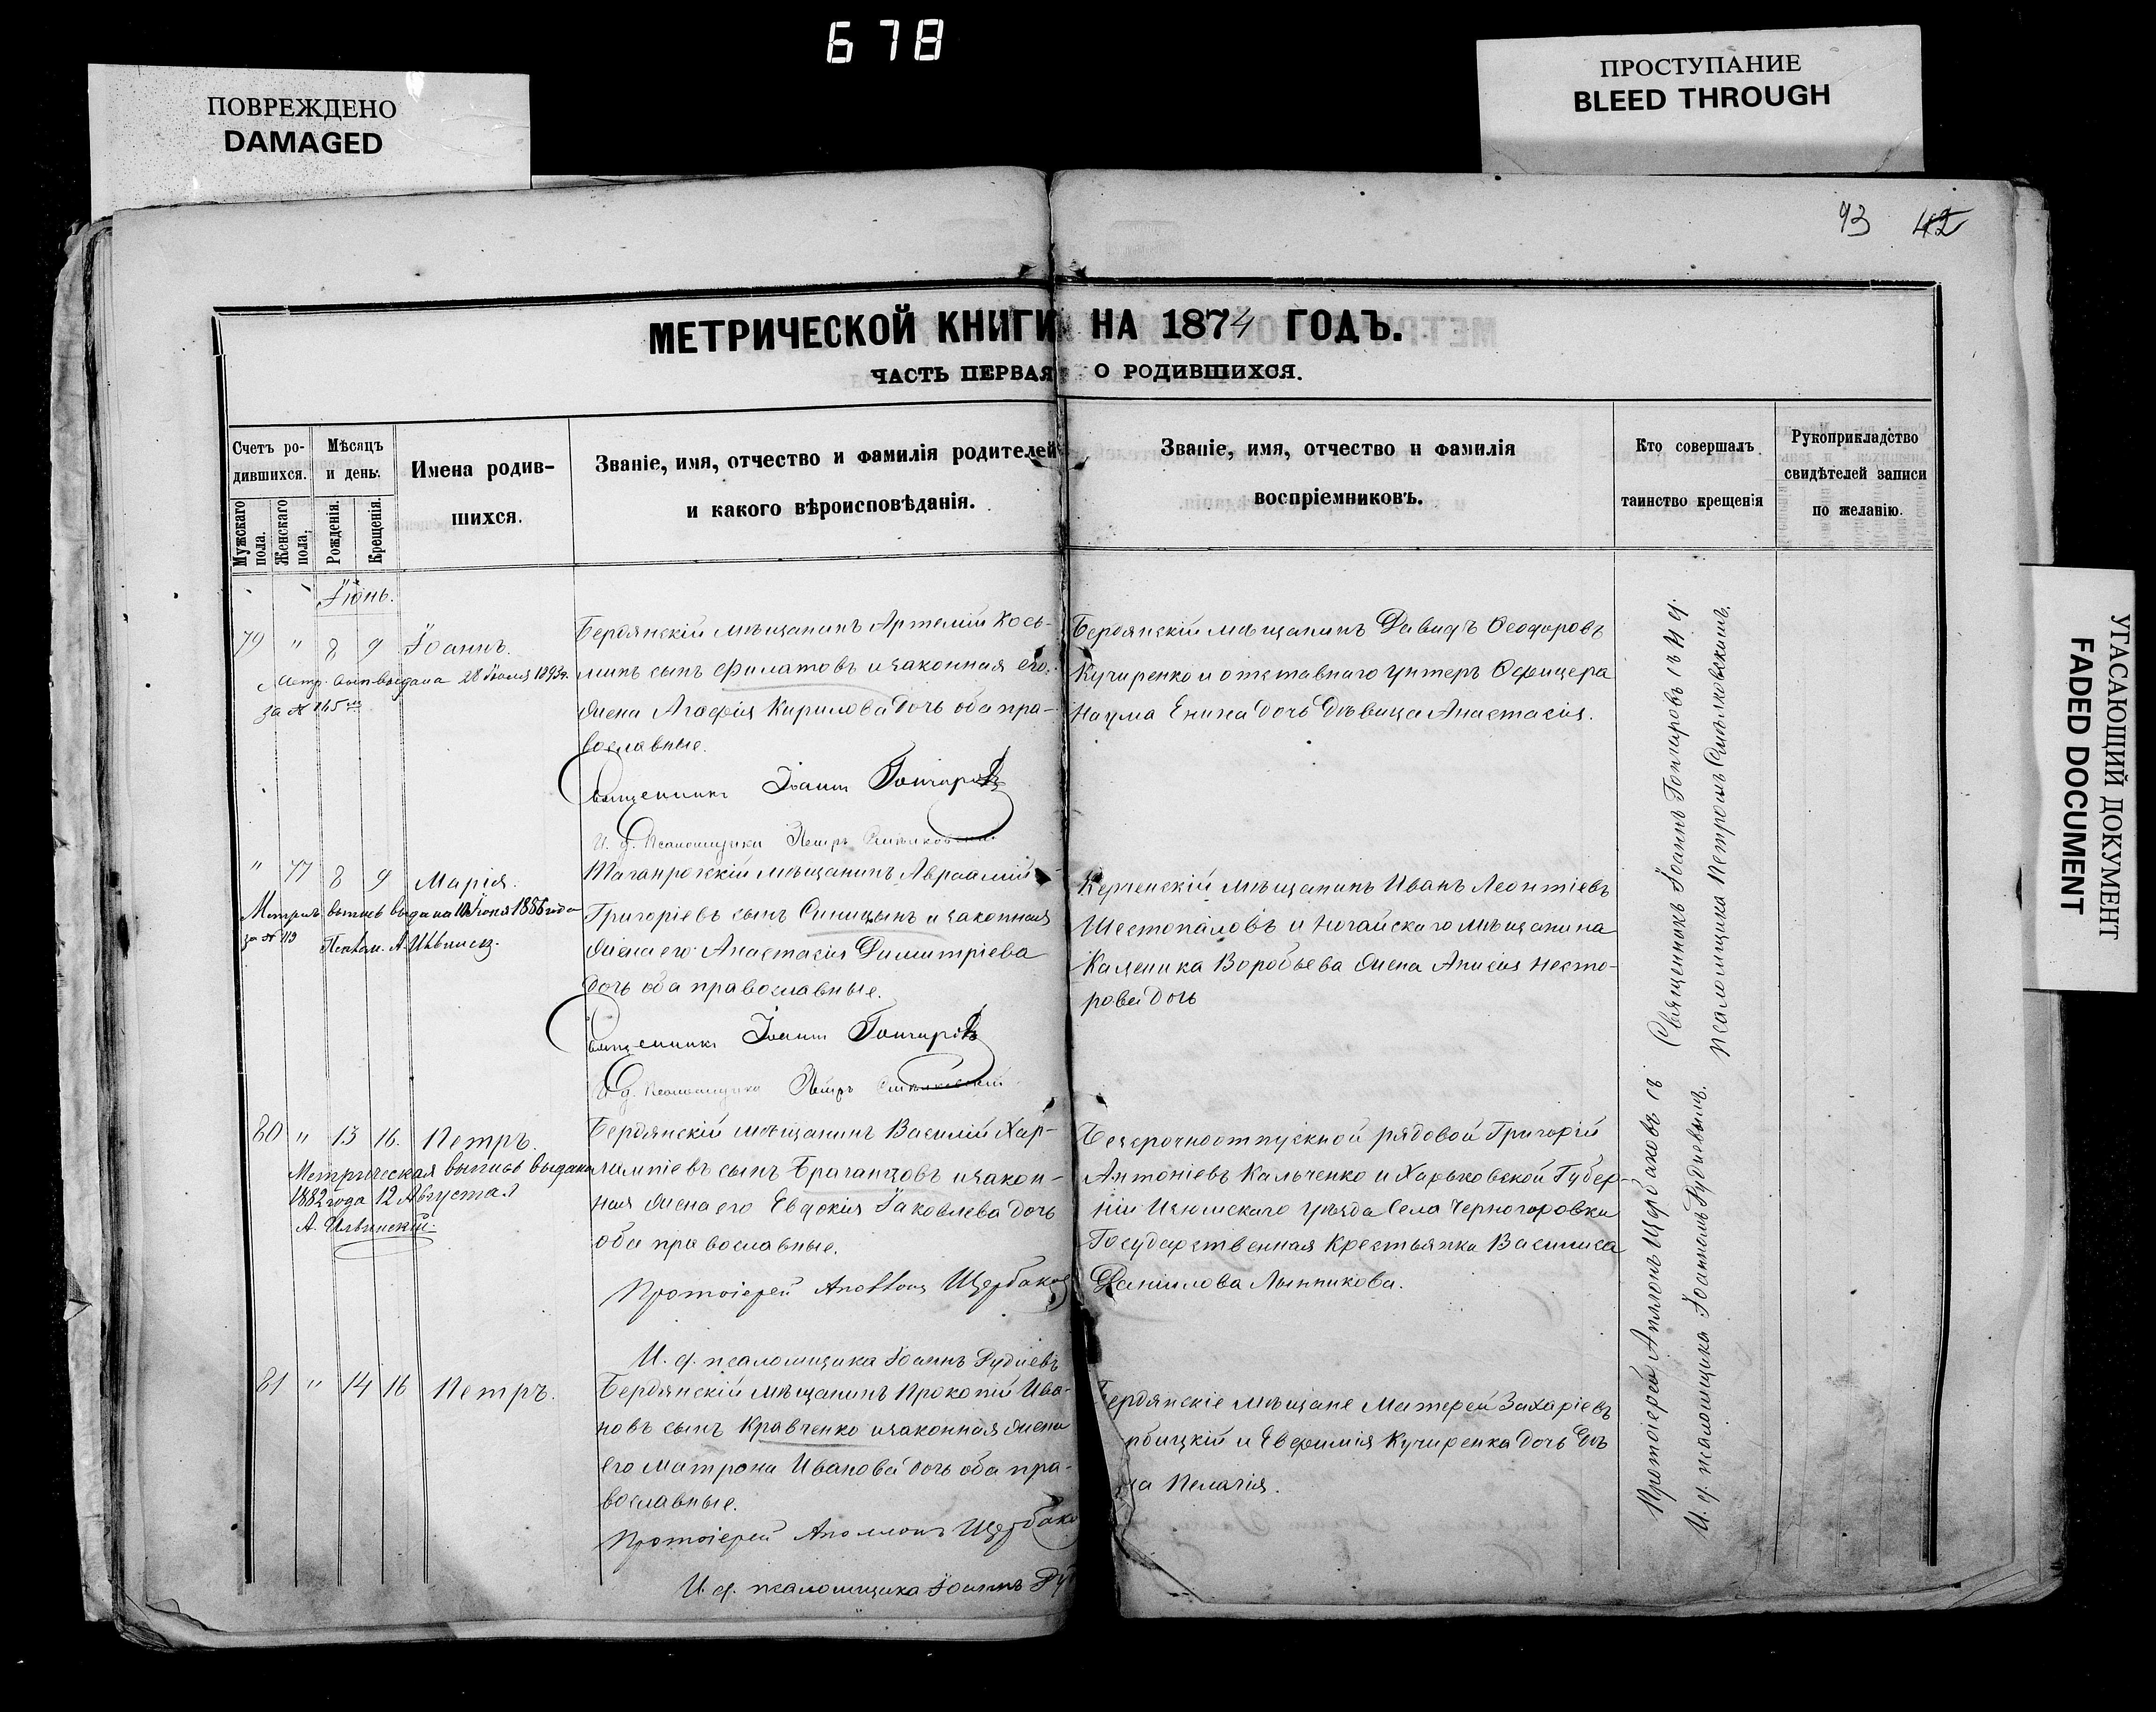 678
ПОВРЕЖДЕНО
DAMAGED
ПРОСТУПАНИЕ
BLEED THROUGH
93 42
МЕТРИЧЕСКОЙ КНИГИ НА 1874 ГОДЪ.
ЧАСТЬ ПЕРВАЯ О РОДИВШИХСЯ.
Счетъ ро-
дившихся.
Мужскаго
пола.
Женскаго
пола.
Мѣсяцъ
и день.
Рожденія.
Крещенія.
Имена родив-
шихся.
Званіе, имя, отчество и фамилія родителей
и какого вѣроисповѣданія.
Званіе, имя, отчество и фамилія
воспріемниковъ.
Кто совершалъ
таинство крещенія
Рукоприкладство
свидѣтелей записи
по желанію.
Іюнь.
79 " 8 9 Іоаннъ.
Метр. вып выдана 28 Іюля 1893г.
за № 165
Бердянскій мѣщанинъ Артемій Кось-
минъ сынъ Филатовъ и законная его
жена Агафія Кирилова дочь оба пра-
вославные.
Священникъ Іоаннъ Гончаровъ
И. д. Псаломщика Петръ Смѣлковскій
Бердянскій мѣщанинъ Давидъ Ѳеодоровъ
Кучиренко и отставнаго унтеръ Офицера
Наума Енина дочь Дѣвица Анастасія.
" 77 8 9 Марія.
Метрич. выпись выдана Іюня 1886 года
за № 113 Псалом. А. Ильинскій.
Таганрогскій мѣщанинъ Авраамій
Григоріевъ сынъ Синицынъ и законная
жена его Анастасія Димитріева
дочь оба православные.
Священникъ Іоаннъ Гончаровъ
И. д. Псаломщика Петръ Смѣлковскій
Керченскій мѣщанинъ Иванъ Леонтіевъ
Шестопаловъ и Ногайскаго мѣщанина
Каленика Воробьева жена Анисія Несто-
рова дочь
80 " 13 16. Петръ.
Метрическая выпись выдана
1882 года 12 Августа
А. Ильинскій.
Бердянскій мѣщанинъ Василій Хар-
лампіевъ сынъ Браганцовъ и закон-
ная жена его Евдокія Іаковлева дочь
оба православные.
Протоіерей Аполлонъ Щербаковъ
И. д. псаломщика Іоаннъ Рудневъ
Безсрочноотпускной рядовой Григорій
Антоніевъ Кальченко и Харьковской Губер-
ніи Изюмскаго уѣзда Села Черногоровки
Государственная Крестьянка Василиса
Данилова Лынникова.
81 " 14 16 Петръ.
Бердянскій мѣщанинъ Прокопій Ива-
новъ сынъ Кравченко и законная жена
его Матрона Иванова дочь оба пра-
вославные.
Протоіерей Аполлонъ Щербако
И. д. псаломщика Іоаннъ Ру
Бердянскіе мѣщане Матфей Захаріевъ
рбицкій и Евфимія Кучиренка дочь Дѣ
ца Пелагія.
Священникъ Іоаннъ Гончаровъ съ И. д.
псаломщика Петромъ Смѣлковскимъ.
Протоіерей Аполлонъ Щербаковъ съ
И. д. псаломщика Іоанномъ Рудневымъ.
УГАСАЮЩИЙ ДОКУМЕНТ
FADED DOCUMENT